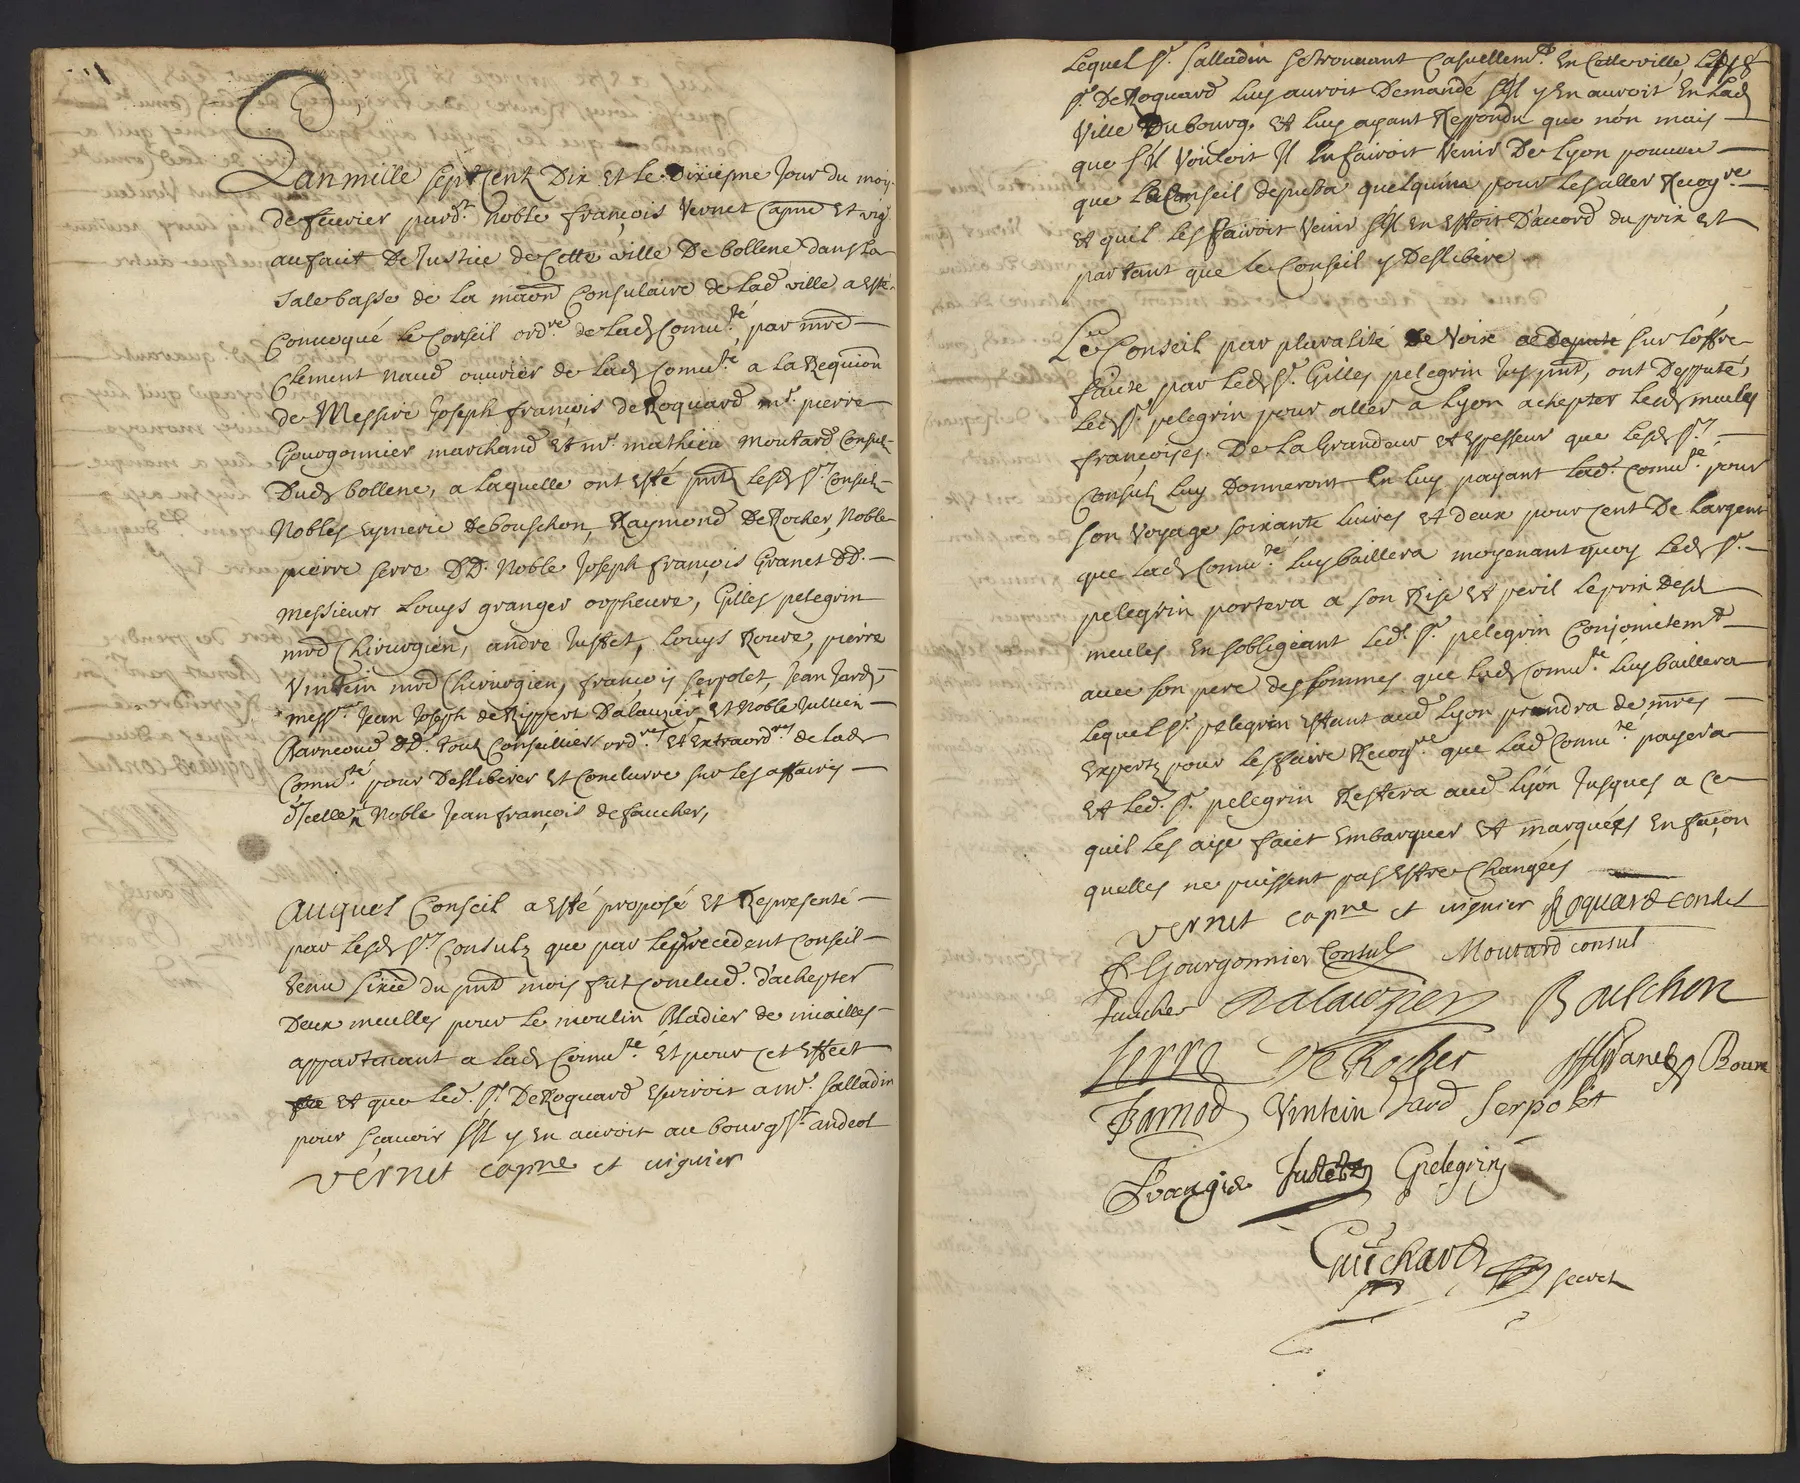 Lan mille sept Cent Dix et le dixiesme Jour du moy
de feuvrier pard.t noble françois Vernet Capne et vig.r
au fait De Justice de Cette ville De bollene dans La
Sale basse de la maôn Consulaire de Lad ville a esté
Convoqué Le Conseil ord.re de Lad Comu.té par mrd
Clement naud ouvrier de Lad Comu.té a la Requion
de Messire Joseph françois de Roquard m.r pierre
Gourgonnier marchand et m.r mathieu Moutard Consulz
Dud bollene, a Laquelle ont esté pnts Lesd s.rs Consulz
Nobles eymeric de bouschon, Raymond De Rocher, Noble
pierre serre DD. Noble Joseph françois Granet DD.
Messieurs Louys granger orpheure, Gilles pelegrin
mrd Chirurgien, andre Juffet, Louys Roure, pierre
Vintein mrd Chirurgien, françois serpolet, Jean Jard,
mess.re Jean Joseph de Rippert Dalauzier, et Noble Jullien
Barnoud DD. tous Conseilliers ord.res et Extraord.res de Lad
Comu.té pour Deslibérer et Conclurre sur Les affaires
d'Jcelle, Noble Jean françois de faucher,
Auquel Conseil a esté proposé et Representé
par Lesd s.rs Consulz que par Le precedent Conseil
tenu sixiê du pnt mois fut conclud. d'achepter
Deux meulles pour Le moulin Bladier de miailles
appartenant a Lad Comu.té et pour cet effect
et que Led. s.r De Roquard escriroit a m.r salladin
pour sçavoir s'il y En auroit au bourg s.t andeol
vernet capne et viguier
Lequel s.r salladin se trouvant Casuellem.t En Cette ville Led
s.r De Roquard Luy auroit Demandé s'il y En auroit En Lad
Ville Du bourg. et Luy ayant Respondu que nón mais
que s'il vouloit Il En fairoit venir De Lyon pourveu
que Le Conseil deputa quelqu'un pour Les aller Recog.re
et quil Les fairoit venir s'il En Estoit D'accord du prix et
partant que Le Conseil y Deslibere
Le Conseil par pluralité de voix a deputé sur L'offre
faite par Led s.r Gilles pelegrin Jcy pnt, ont Desputé,
Led s.r pelegrin pour aller a Lyon achepter Lesd meules
françoises. De La Grandeur et Espesseur que Lesd s.rs
Consulz Luy Donneront En Luy payant Lad. Comu.té pour
son voyage soixante Livres et deux pour cent De L'argent
que Lad Comu.té Luy baillera moyenant quoy Led s.r
pelegrin portera a son Risq et peril Le prix Desd
meules En s'obligeant Led. s.r pelegrin Conjointem.t
avec son pere des sommes que Lad Comu.té Luy baillera
Lequel s.r pelegrin Estant aud Lyon prendra de mres
Expertz pour Les faire Recog.re que Lad Comu.té payera
et Led. s.r pelegrin Restera aud Lyón Jusques a ce
quil Les aije faiet Embarquer et marquées En façon
quelles ne puissent pas Estre Changées
vernet capne et viguier Roquard consul
P Gourgonnier Consul Moutard consul
faucher Dalauzier Bouschon
serre De Rocher Granet Roure
Barnod Vintein Jard Serpolet
Grangier Juffet Gpelegrin
Guichard secret